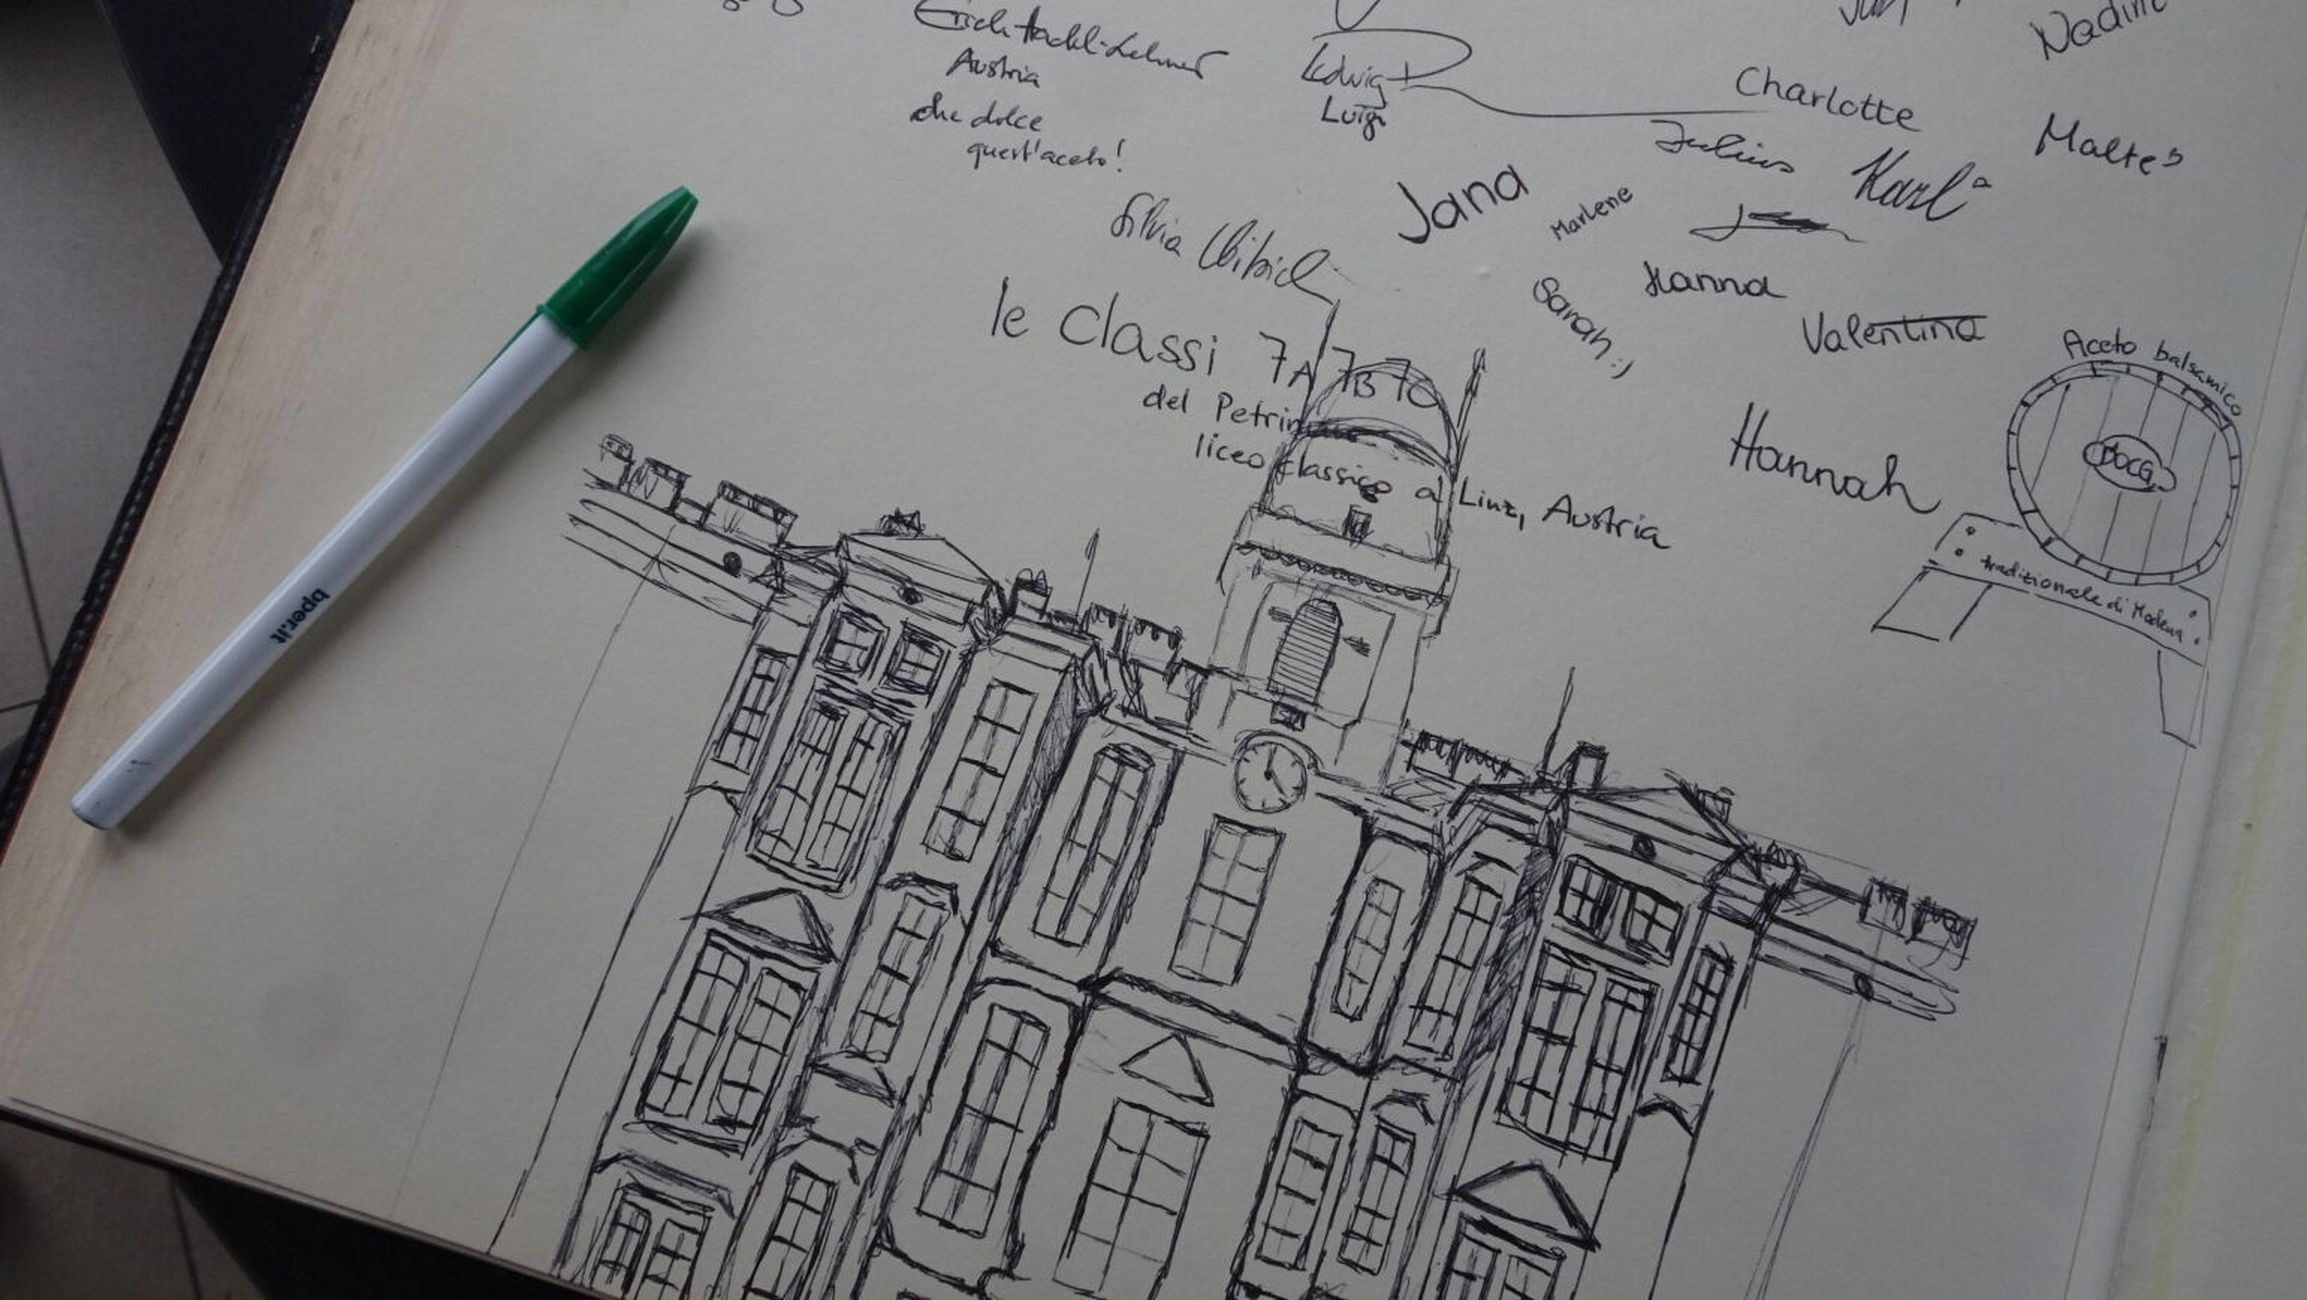 Austria
che dolce
quest'aceto!
Ludwig
Luigi
Nadine
Charlotte
Julius
Karl
Malte
Jana
Marlene
Silvia
Hanna
Sarah :)
Valentina
Hannah
le classi 7A 7B 7C
del Petrinum
liceo classico a Linz, Austria
Aceto balsamico
DOCG
tradizionale di Modena
pper.it